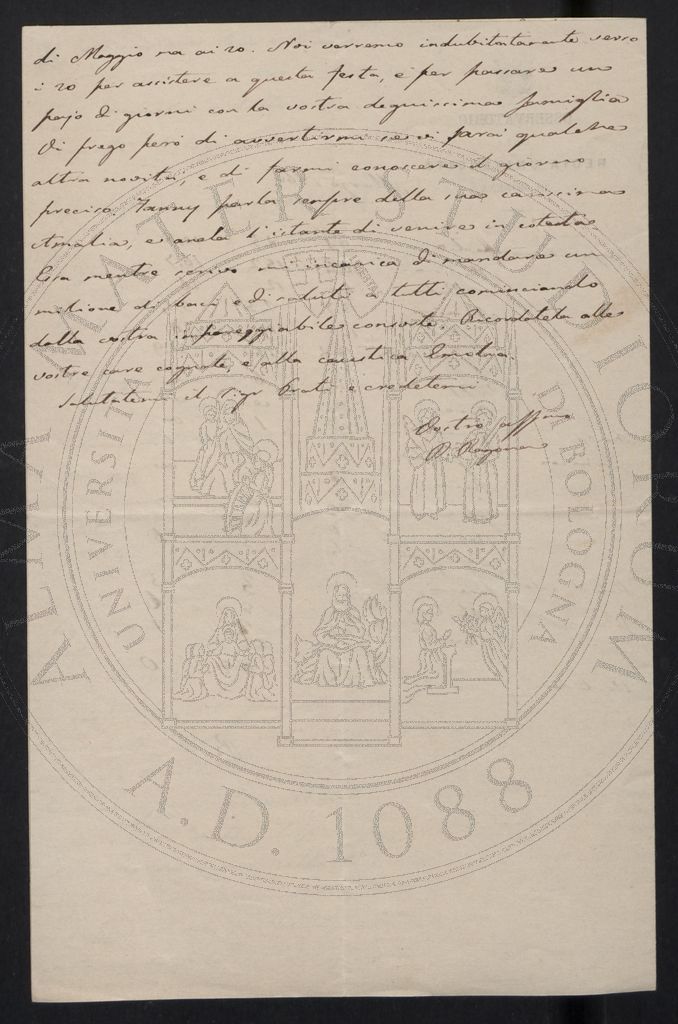 di Maggio ma ai 20. Noi verremo indubitatamente verso
i 20 per assistere a questa festa, e per passare un
pajo di giorni con la vostra degnissima famiglia
Vi prego però di avvertirmi se vi sarà qualche
altra novità, e di farmi conoscere il giorno
preciso. Fanny parla sempre della sua carissima
Amalia, e anela l'istante di venire in cotesta.
Essa mentre scrivo mi incarica di mandare un
milione di baci e di saluti a tutti cominciando
dalla vostra impareggiabile consorte. Ricordatela alle
vostre care cognate, e alla caustica
Salutatemi il Sigr Prati e credetemi
Vostro affmo
D. Ragona
ALMA MATER STUDIORUM
UNIVERSITÀ DI BOLOGNA
A.D. 1088